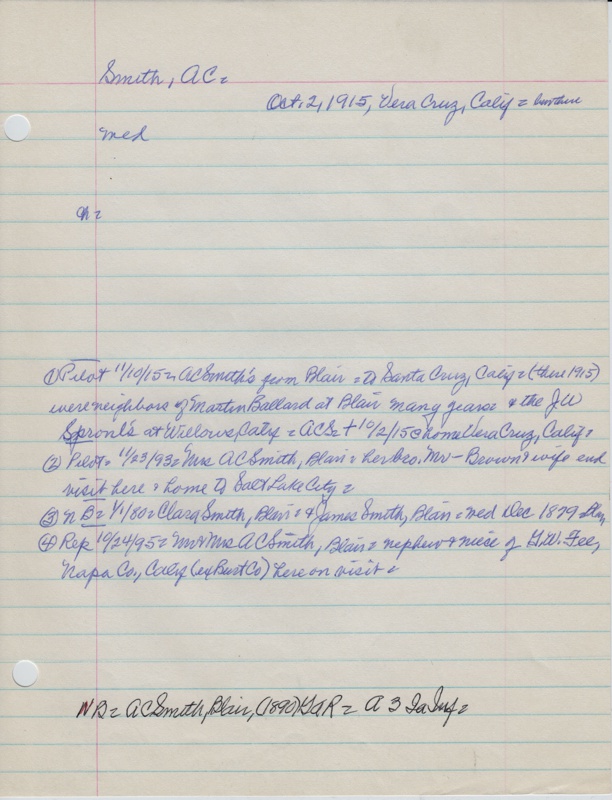 Smith, AC =
Oct. 2, 1915, Vera Cruz, Calif =
med
ch =
① Pilot 11/10/15 = AC Smith's from Blair = to Santa Cruz, Calif = (there 1915)
were neighbors of Martin Ballard at Blair many years = & the JW
Sproul's at Willows, Calif = ACS = + 10/2/15 @ home Vera Cruz, Calif =
② Pilot = 11/23/93 = Mrs AC Smith, Blair = her bro. Mr - Brown & wife end
visit here = home to Salt Lake City =
③ NB = 1/1/80 = Clara Smith, Blair = & James Smith, Blair = med Dec 1879
④ Rep 10/24/95 = Mr & Mrs AC Smith, Blair = nephew & niece of G.W. Fee,
Napa Co., Calif (ex Burt Co) here on visit =
NB = AC Smith, Blair, (1890) GAR = A 3 Ia Inf =